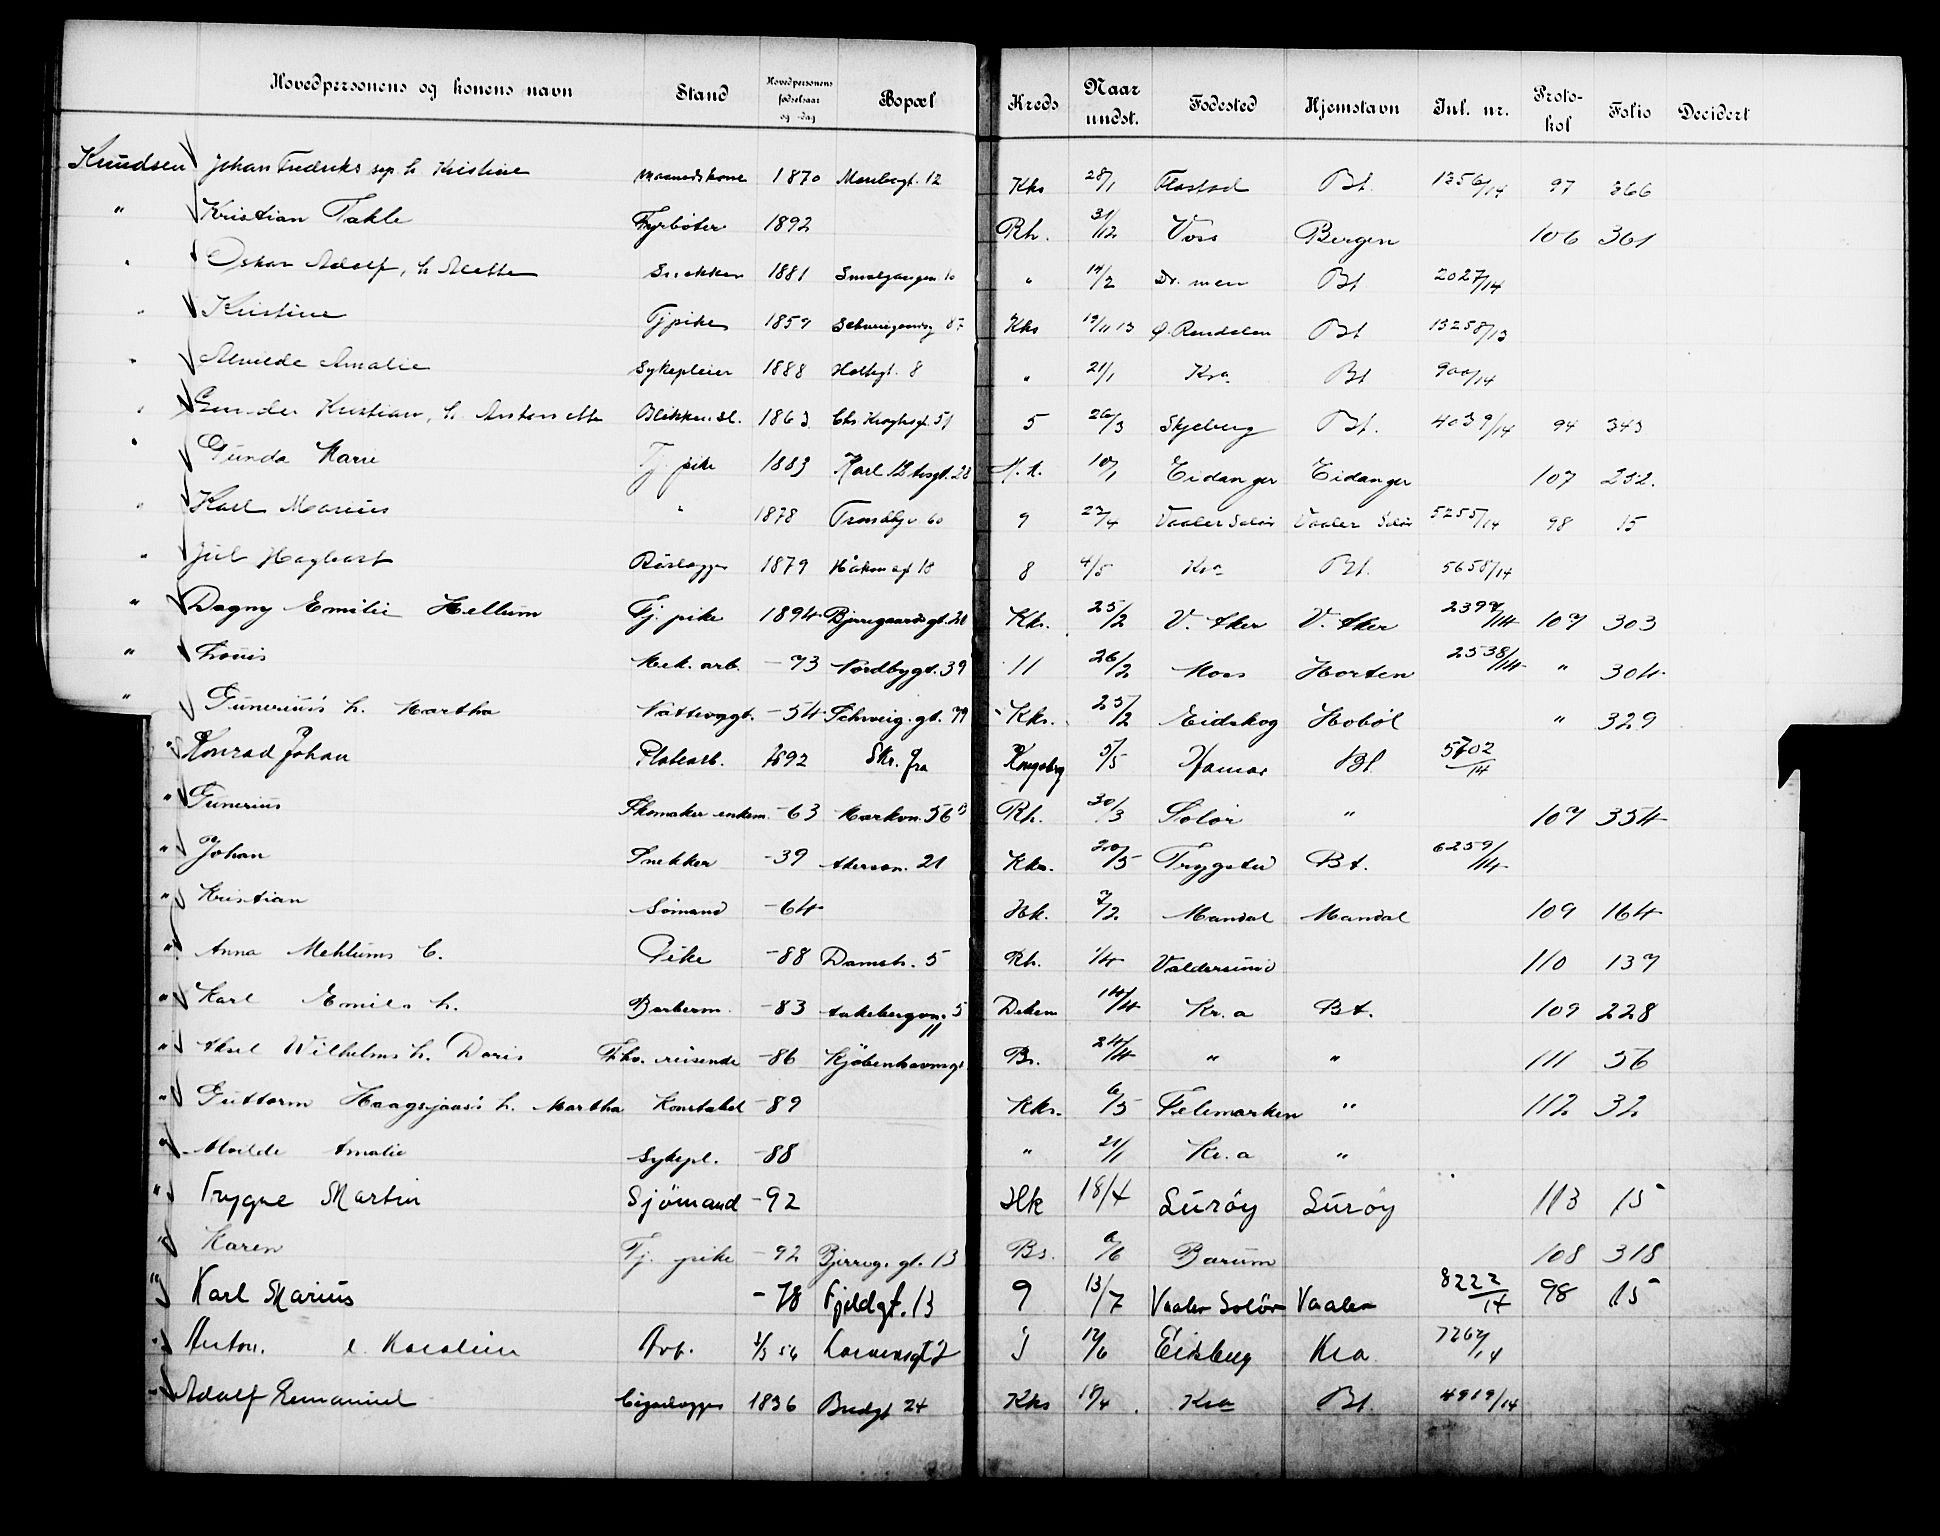 Hovedpersonens og konens navn Stand Hovedpersonens fødselsaar og -dag Bopæl Kreds Naar undst. Fødested Hjemstavn Inl. nr. Protokol Folio Decidert
Knudsen Johan Fredriks sep. h. Kristine 1870 12 Kks 28/1 Bt. 1356/14 97 366
" Kristian Takle Fyrbøter 1892 Rh. 31/12 Voss Bergen 106 361
" Oskar Adolf, h. Alette Snekker 1881 Smalgangen 10 " 14/2 Dr. men Bt 2027/14
" Kristine Tjpike 1859 Schweigaardsg 87 Kks 19/11 13 Ø. Rendalen Bt 13258/13
" Alvilde Amalie Sykepleier 1888 Holtegt. 8 " 21/1 Kra Bt 900/14
" Gunder Kristian, h. Antonette Blikkensl. 1863 Chr Kroghsgt. 51 5 26/3 Skjeberg Bt. 4039/14 94 343
" Gunda Marie Tj. pike 1883 Karl 12 tesgt. 28 10/1 Eidanger Eidanger 107 232.
" Karl Marius " 1878 Trondhjv 60 9 23/4 Vaaler Solør Vaaler Solør 5255/14 98 15
" Jul Hagbart Rørlægger 1879 18 8 4/5 Kra Bt. 5658/14
" Dagny Emilie Hellum Tj. pike 1894 Bjerregaardsgt. 20 Kks. 25/2 V. Aker V. Aker 2397/14 107 303
" Louis Mek. arb. -73 Nordbygt. 39 11 26/2 Moss Horten 2538/14 " 304
" Gunerius's h. Martha Nattevagt. -54 Schweig. gt. 79 Kks. 25/2 Eidskog Hobøl " 329
" Konrad Johan Platearb. 1892 Skr. fra Kongsberg 5/5 Hamar Bt 5702/14
" Gunerius Skomaker enkem. -63 Markvn. 56 B Rh. 30/3 Solør " 107 354
" Johan Snekker -39 Akersvn. 21 Kks. 20/5 Trygstad Bt. 6259/14
" Kristian Sømand -64 Hk. 7/2 Mandal Mandal 109 164
" Anna Mehlums C. Pike -88 Damstr. 5 Rh. 1/4 Valdersund 110 137
" Karl Emils h. Barberm. -83 Aakebergvn. 5 Dekem 14/4 Kr.a Bt. 109 228
" Aksel Wilhelms h. Doris reisende -86 Kjøbenhavnsgt. 11 Bs. 24/4 " " 111 56
" Guttorm Haagsjaas's h. Martha Konstabel -89 Kks. 6/5 Telemarken " 112 32
" Alvilde Amalie Sykepl. -88 " 21/1 Kr.a "
" Trygve Martin Sjømand -92 Hk 18/4 Lurøy Lurøy 113 15
" Karen Tj. pike -92 Bjerreg. gt. 13 Bs. 6/6 Bærum 108 318
" Karl Marius -78 Fjeldgt. 13 9 13/7 Vaaler Solør Vaaler 8222/14 98 15
" Anton. e. Karoline Arb. 1/3 56 5 12/6 Eidsberg Kra 7267/14
" Adolf Emanuel Cigarlægger 1836 Bredgt 24 Kks 18/4 Kra Bt 4919/14